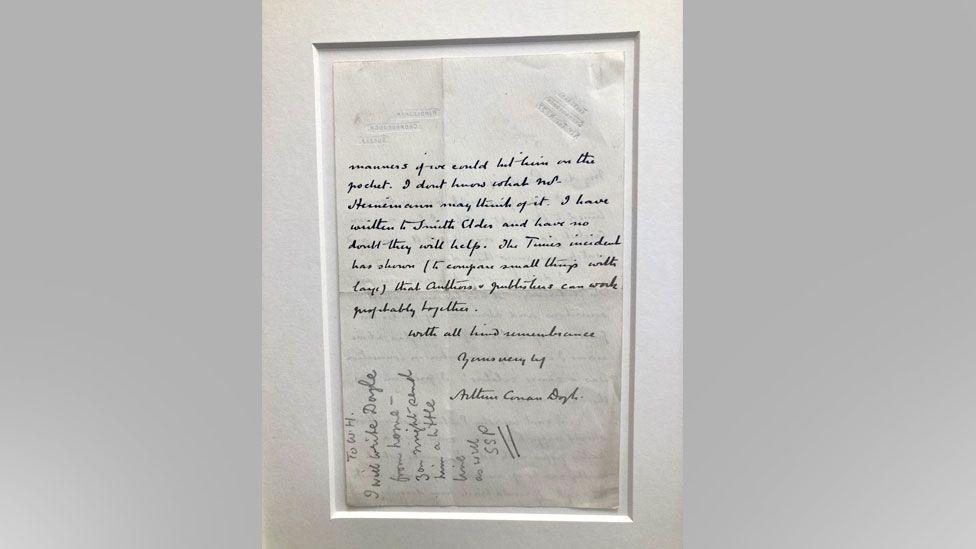 WINDLESHAM,
CROWBOROUGH,
SUSSEX.
manners if we could hit him on the
pocket. I dont know what Mr
Heinemann may think of it. I have
written to Smith Elder and have no
doubt they will help. The Times incident
has shown (to compare small things with
large) that Authors & publishers can work
profitably together.
With all kind remembrance
Yours very
Arthur Conan Doyle.
To W.H.
I will write Doyle
from home –
You might send
him a little
line
as well
SSP